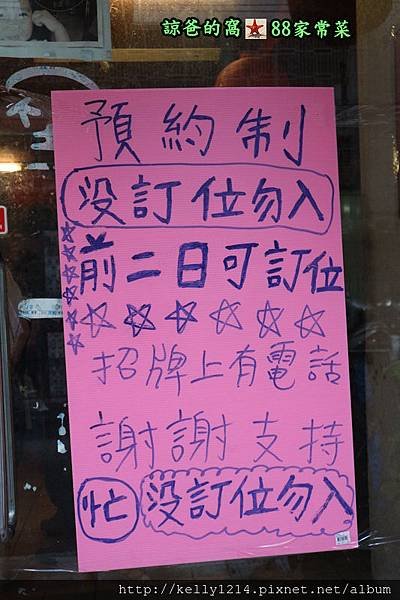 諒爸的窩 88家常菜
預約制
没訂位勿入
前二日可訂位
招牌上有電話
謝謝支持
忙 没訂位勿入
http://kelly1214.pixnet.net/album